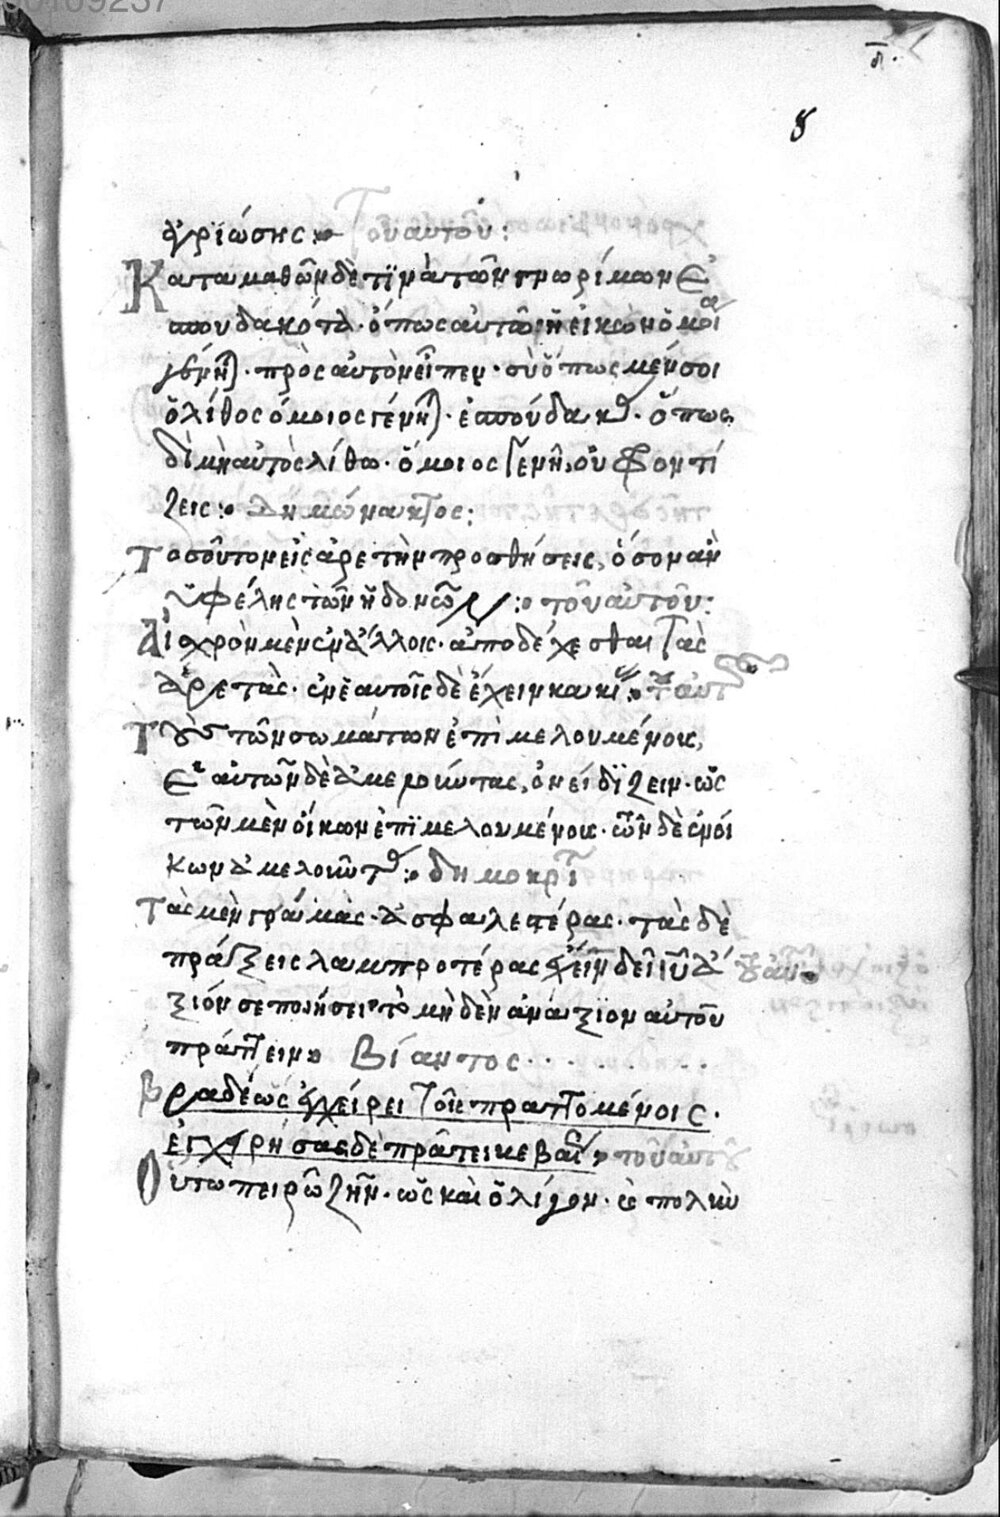 π̅.
8
ἀγριώσης :· Τοῦ αὐτοῦ :
Καταμαθὼν δέ τινα τῶν γνωρίμων ἐ
σπουδακότα· ὅπως αὐτῶ ἡ εἰκὼν ὁμοία
γένηται· πρὸς αὐτὸν εἶπεν· σὺ ὅπως μέν σοι
ὁ λίθος ὅμοιος γένηται· ἐσπούδακας· ὅπως
δὲ μὴ αὐτὸς λίθω· ὅμοιος γένη, οὐ φροντί
ζεις :· Δημώνακτος :
Τοσοῦτον εἰς ἀρετὴν προσθήσεις, ὅσον ἂν
ὑφέλης τῶν ἡδονῶν :· τοῦ αὐτοῦ :
Αἰσχρὸν μὲν ἐν ἄλλοις· ἀποδέχεσθαι τὰς
ἀρετὰς· ἐν ἑαυτοῖς δὲ ἔχειν κακίας :· τοῦ αὐτοῦ
Τοὺς τῶν σωμάτων ἐπιμελουμένους,
ἑαυτῶν δὲ ἀμελοῦντας, ὀνειδίζειν· ὡς
τῶν μὲν οἴκων ἐπιμελουμένους· τῶν δὲ ἐνοί
κων ἀμελοῦντας :· δημοκρίτου
Τὰς μὲν γραμμὰς· ἀσφαλεστέρας· τὰς δὲ
πράξεις λαμπροτέρας ἔχειν δεῖ :· τοῦ αὐτοῦ
ξιόν σε ποιήσει τὸ μηδὲν ἀνάξιον αὐτοῦ
πράττειν :· Βίαντος · · ·
Βραδέως ἐγχείρει τοῖς πραττομένοις·
ἐγχειρήσας δὲ πρᾶττε βεβαίως :· τοῦ αὐτοῦ
Οὕτω πειρῶ ζῆν· ὡς καὶ ὀλίγον· καὶ πολὺν